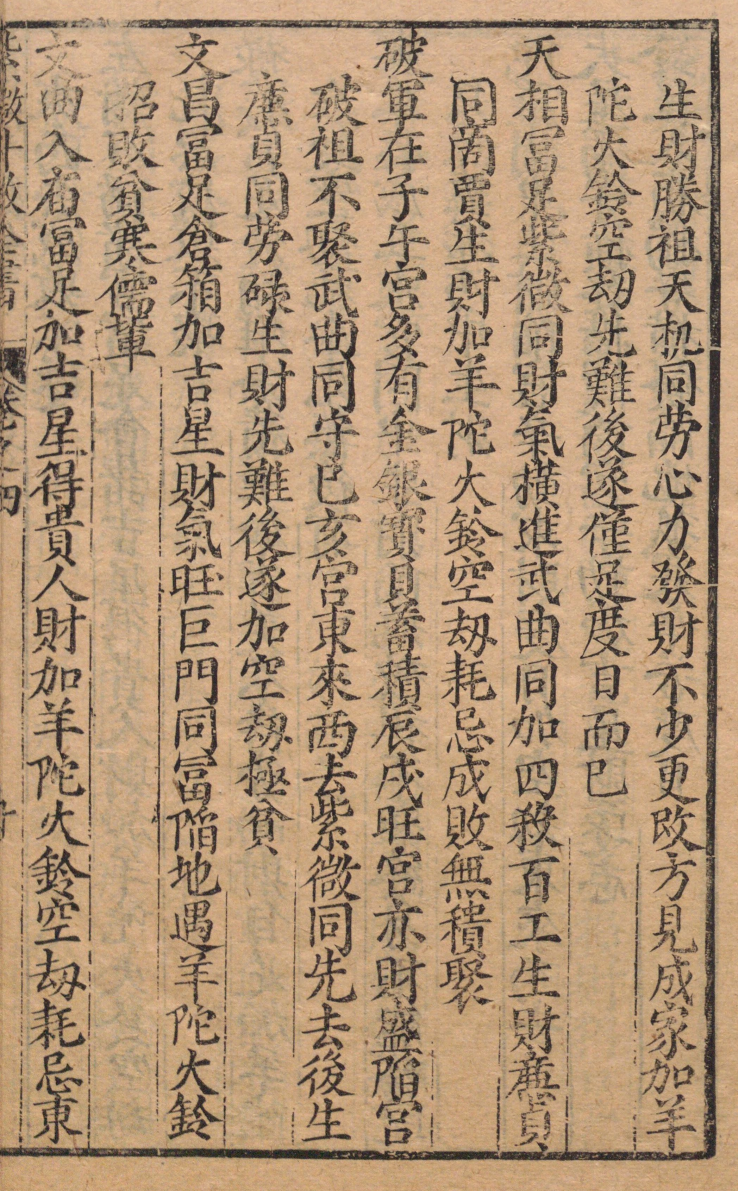 生財勝祖天机同劳心力發財不少更改方見成家加羊
陀火鈴空刼先難後遂僅足度日而已
天相冨足紫微同財氣橫進武曲同加四殺百工生財亷貞
同啇賈生財加羊陀火鈴空刼耗忌成敗無積聚
破軍在子午宫多有金銀寳貝蓄積辰戌旺宫亦財盛陷宫
破祖不聚武曲同守巳亥宫東來西去紫微同先去後生
亷貞同劳碌生財先難後遂加空刼極貧
文昌冨足倉箱加吉星財氣旺巨門同冨陷地遇羊陀火鈴
招敗貧寒儒軰
文曲入庙冨足加吉星得貴人財加羊陀火鈴空刼耗忌東
紫微斗数全書 卷之四 十